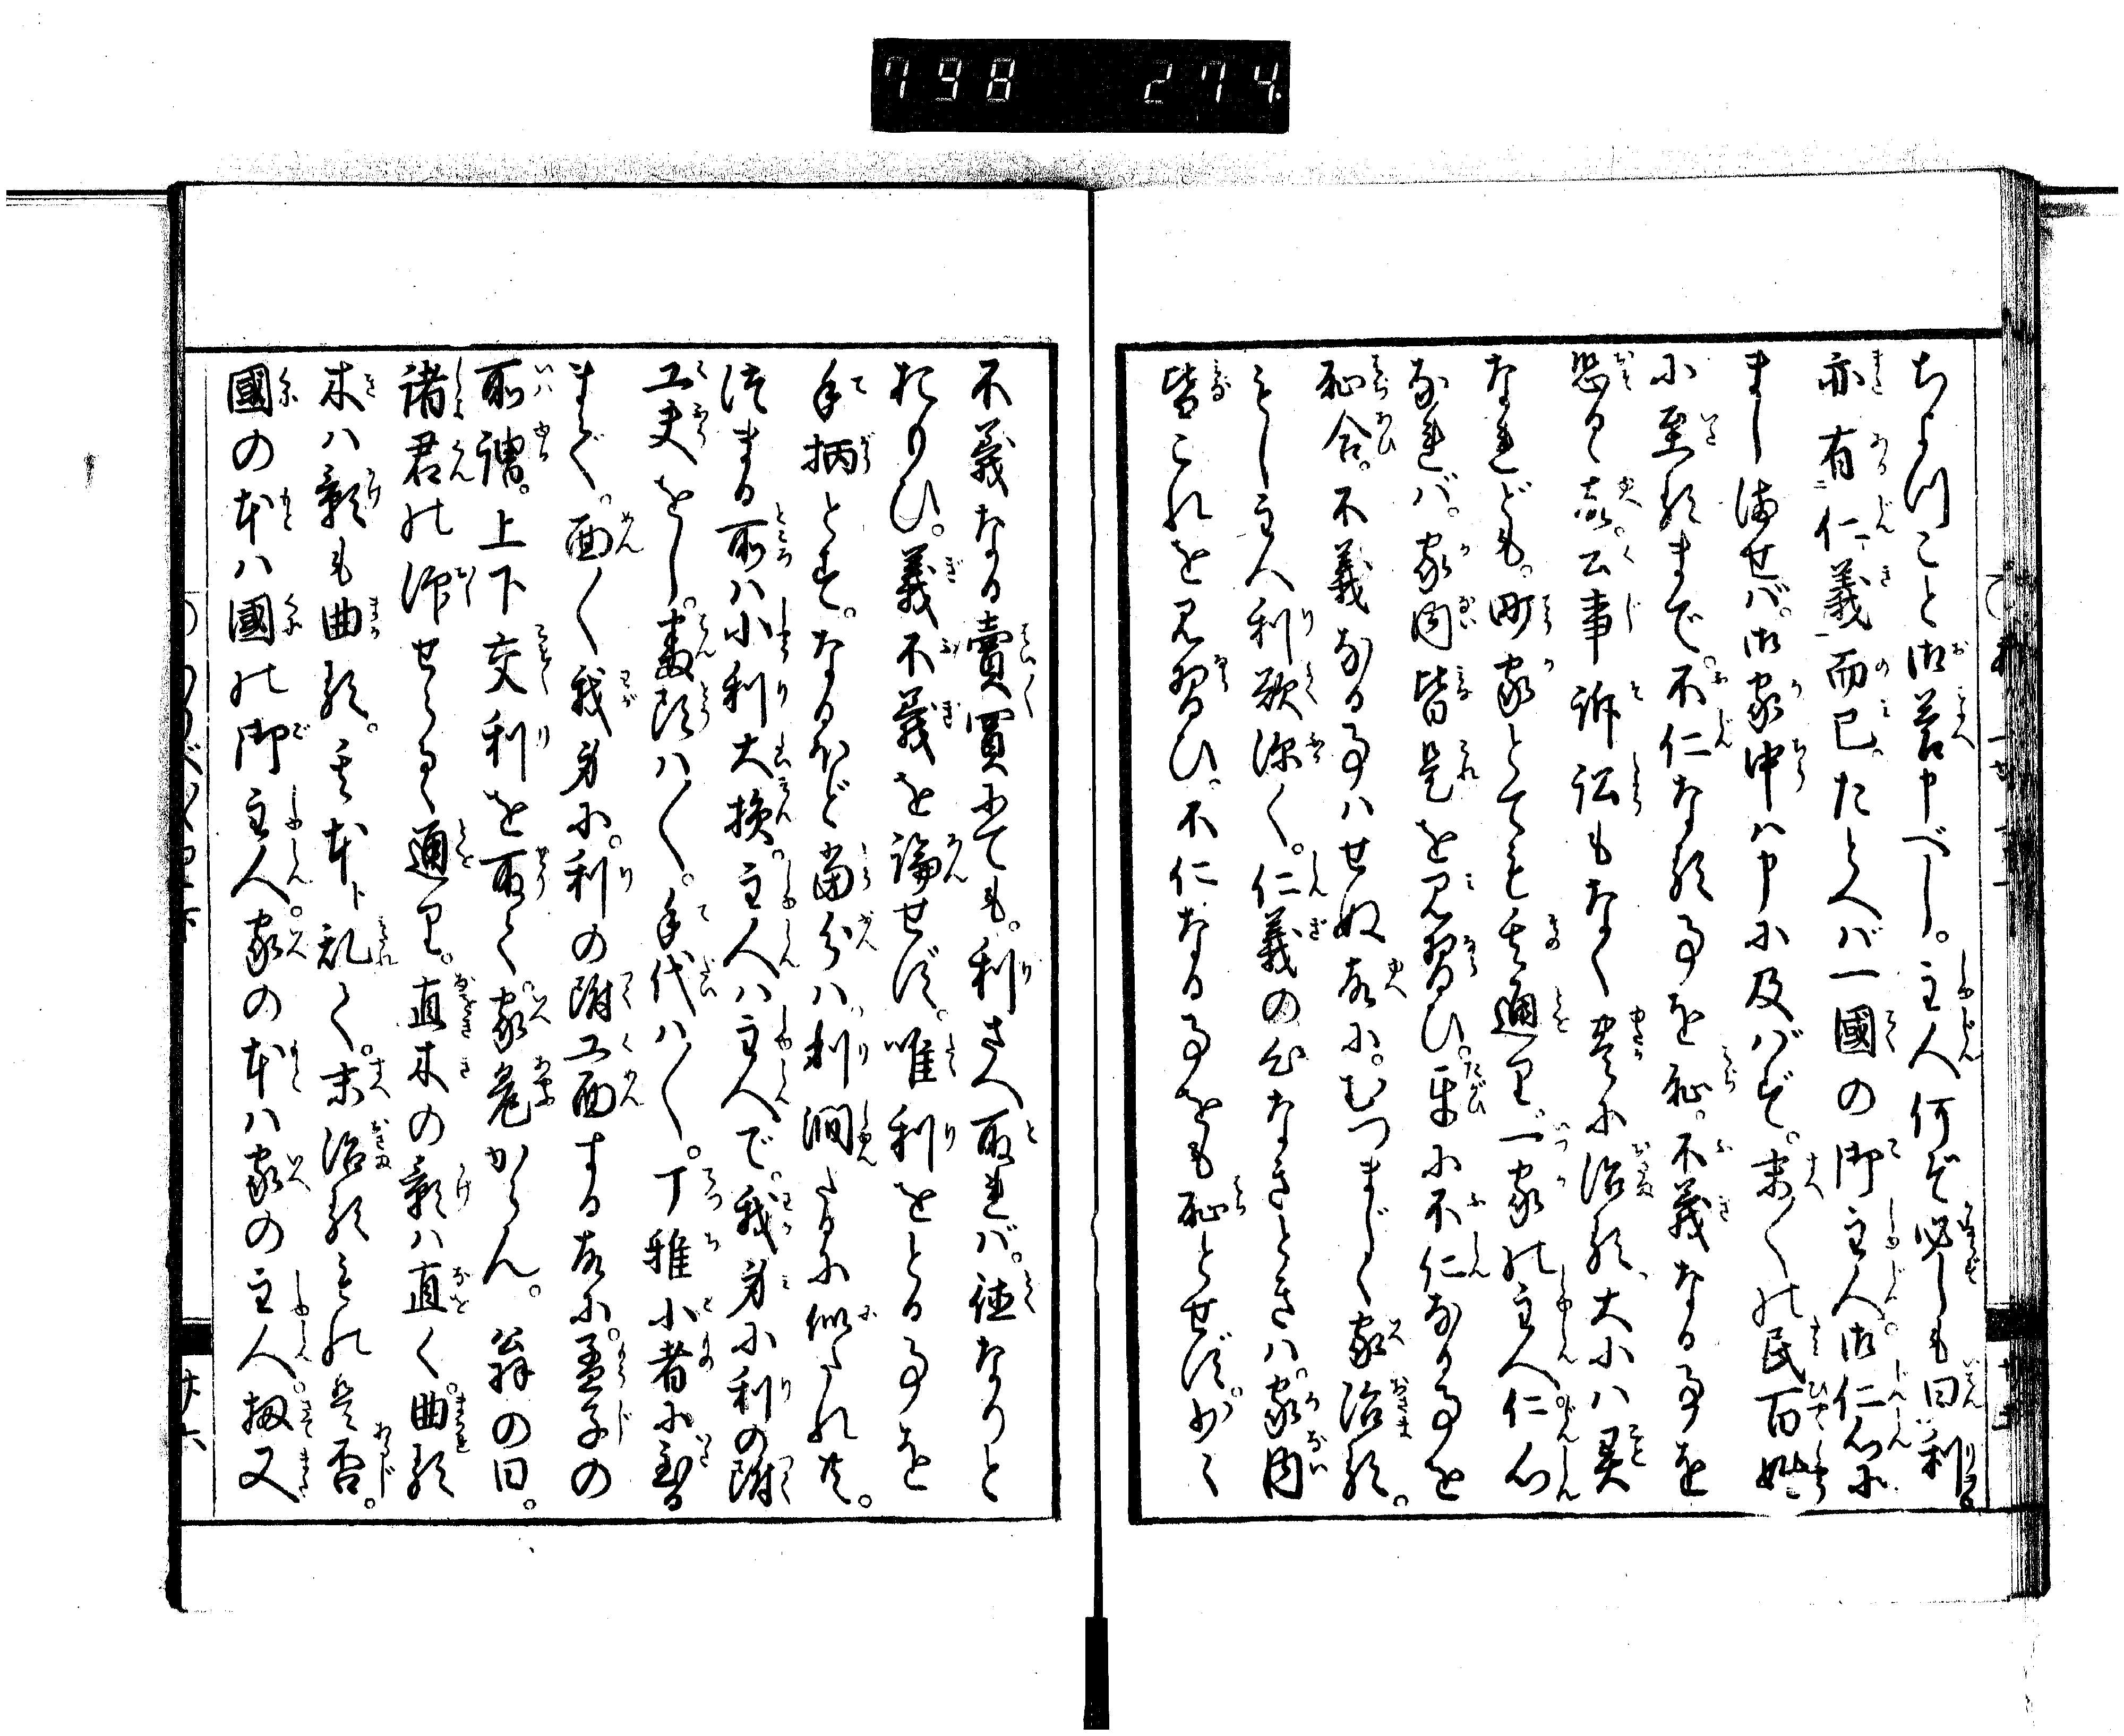 798 274
ちよつこと御答申べし。主人何ぞ必しも曰利
亦有仁義而已。たとへバ一國の御主人御仁心に
まし満せバ。御家中ハ申に及バず。末〱の民百姓
に至るまで。不仁なる事を恥。不義なる事を
恐るゝ故。公事訴訟もなく安に治る。大小ハ異
なれども。町家とても其通り。一家の主人仁心
なれバ。家内皆是を見習ひ。互に不仁なる事を
恥合。不義なる事ハせぬ故に。むつまじく家治る。
もし主人利欲深く。仁義の心なきときハ。家内
皆これを見習ひ。不仁なる事をも恥とせず。
不義なる賣買にても。利さへ取れバ。徳なりと
おもひ。義不義を論せず。唯利をとる事を
手柄とす。なるほど當分ハ。利潤たるに似たれ共。
つまる所ハ小利大損。主人ハ主人で。我身に利の附
工夫をし。番頭ハ〱。手代ハ〱。丁稚小者に至る
まで。面〱我身に。利の附工面する故に。孟子の
所謂。上下交利を取て。家危からん。翁の曰。
諸君の仰せらるゝ通り。直木の影ハ直く。曲る
木ハ影も曲る。其本乱て。末治るものは否。
國の本ハ國の御主人。家の本ハ家の主人。扨又